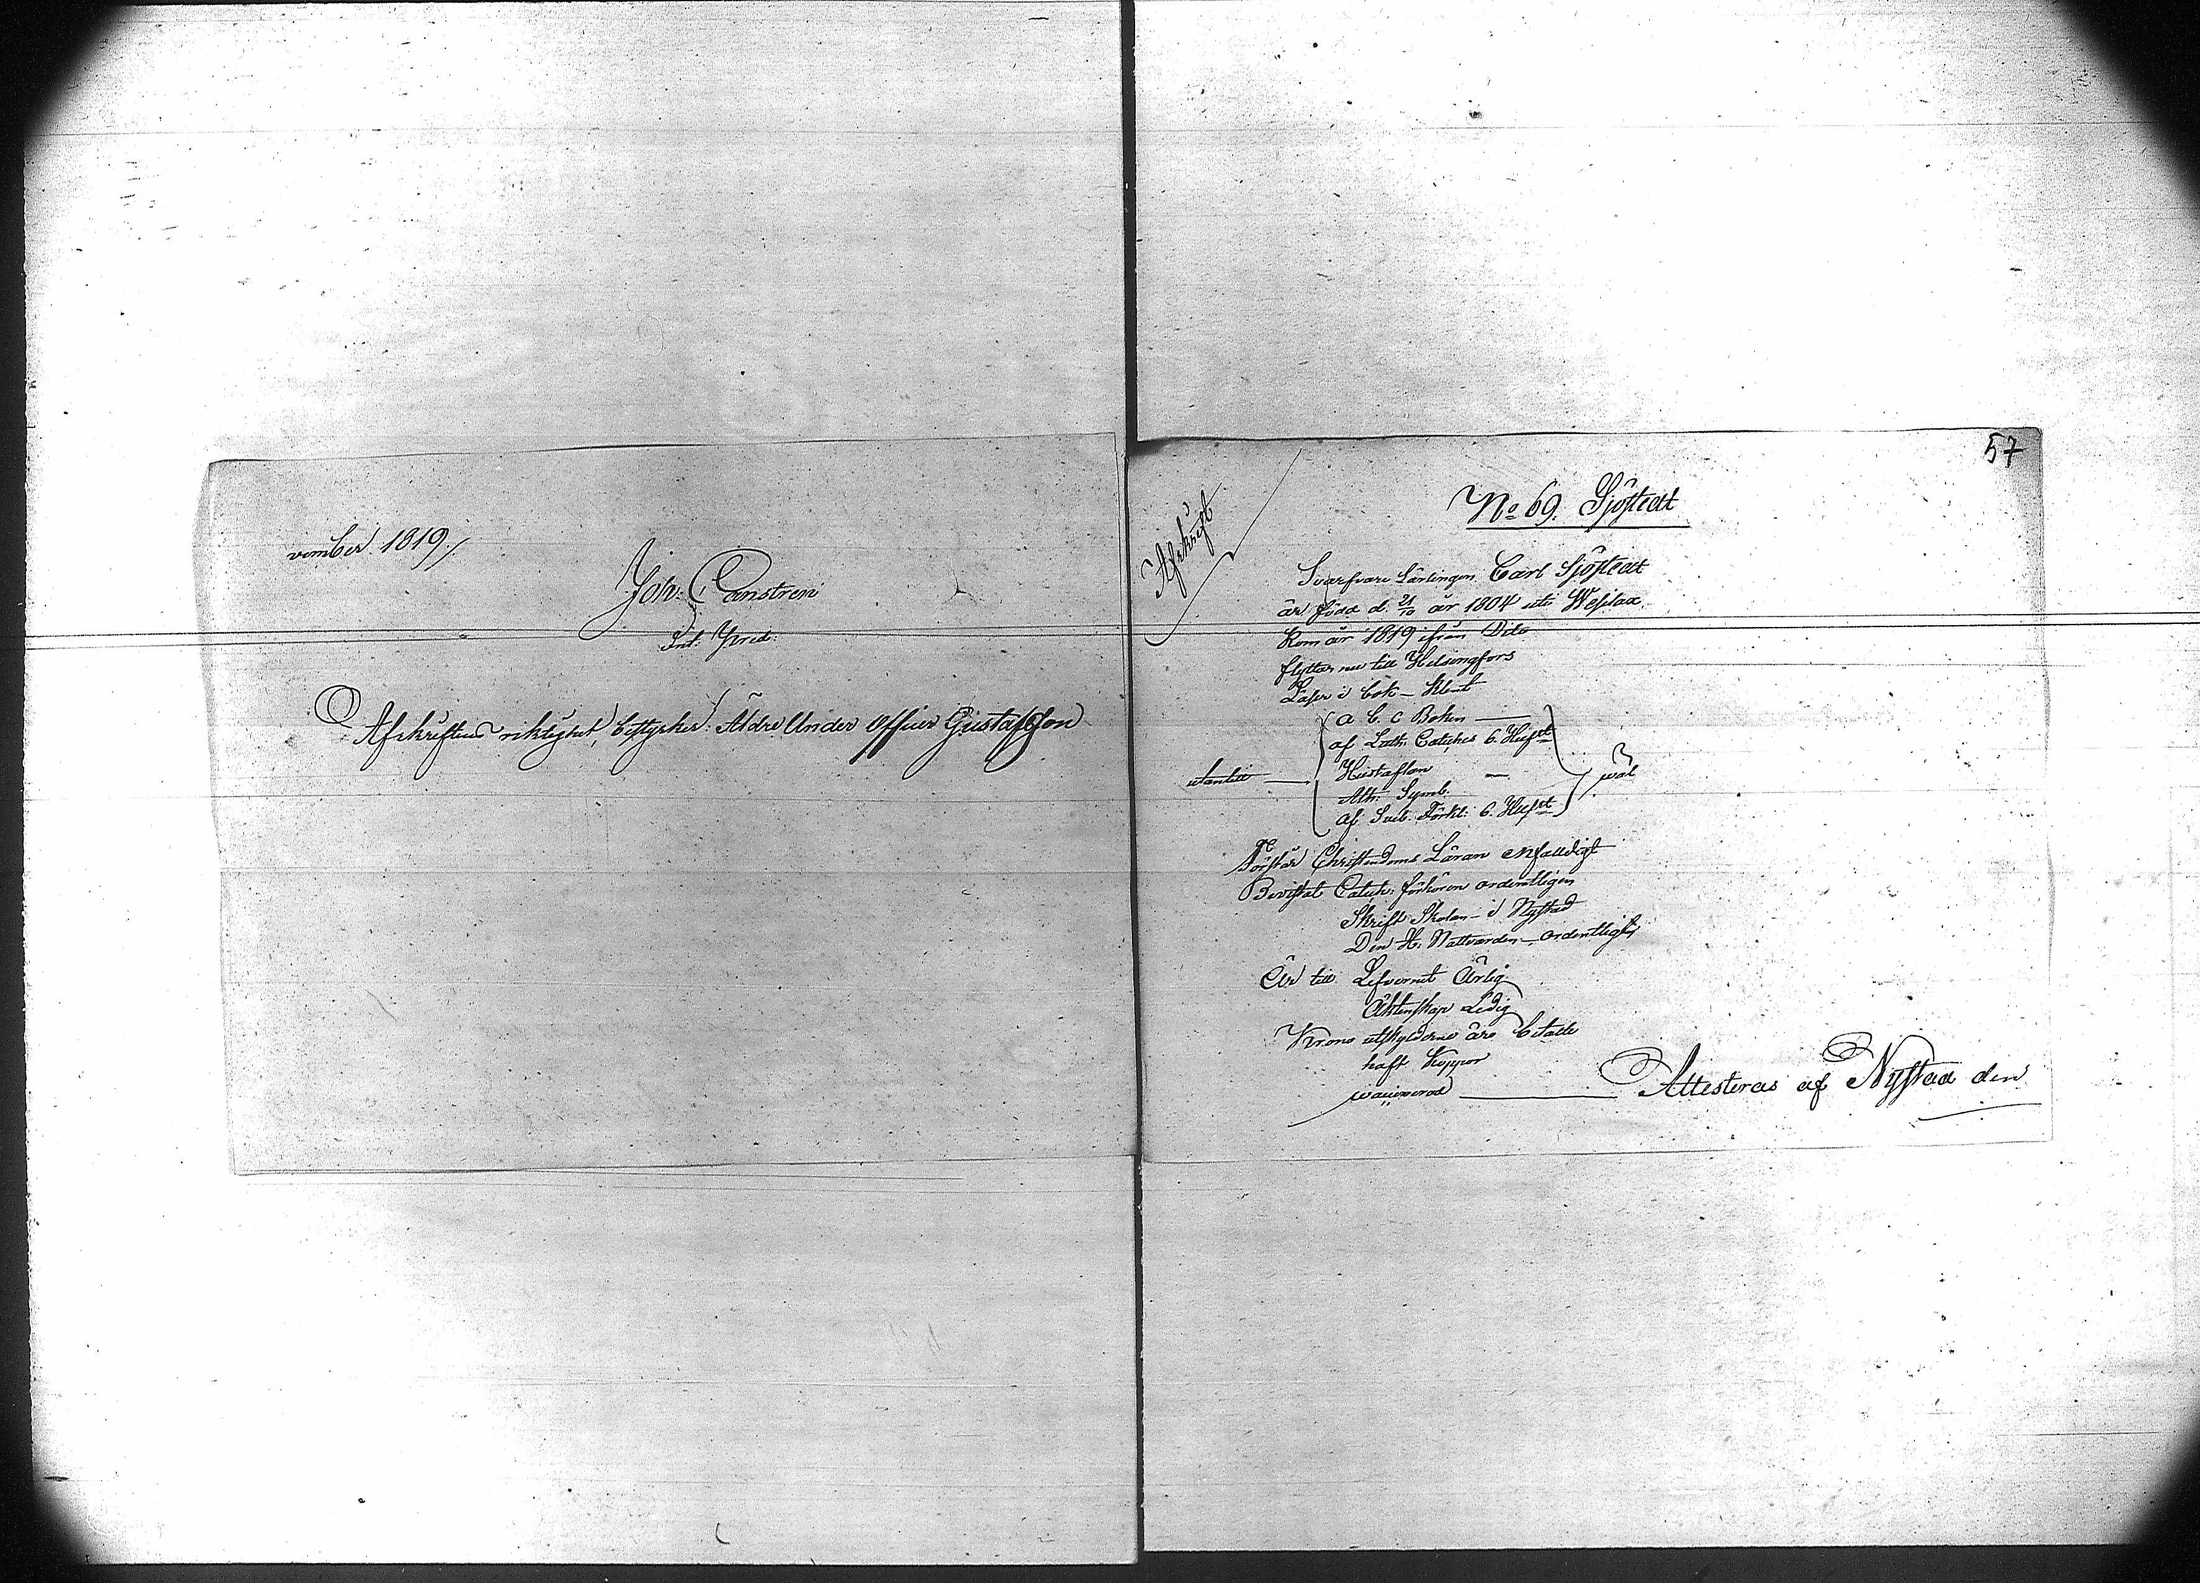 vember 1819./
Joh: Canstren
Int: Pred:
Afskriftens riktighet, bestyrker: Äldre Under Officer Gustafsson
57
Afskrift
No 69. Sjöstedt
Svarfvare Lärlingen Carl Sjöstedt
är född d. 21/10 år 1804 uti Westad.
Kom år 1819 ifrån Dito
flyttar nu till Helsingfors
Läser i bok – Klent
a b c Boken —
af Luth: Catches 6. Hufst
utantill — Hustaflan — väl
Ath: Symb.
af Sveb. Förkl: 6. Hufst
Förstår Christendoms Läran enfaldigt
Bevistat Catech: förhören ordentligen
Skrift Skolan – i Nystad
Den H: Nattvarden – ordentligen
Är till Lefvernet Ärlig
Äktenskap Ledig
Krono utskylderne äro betalte
haft Koppor
vaccinerad — Attesteras af Nystad den